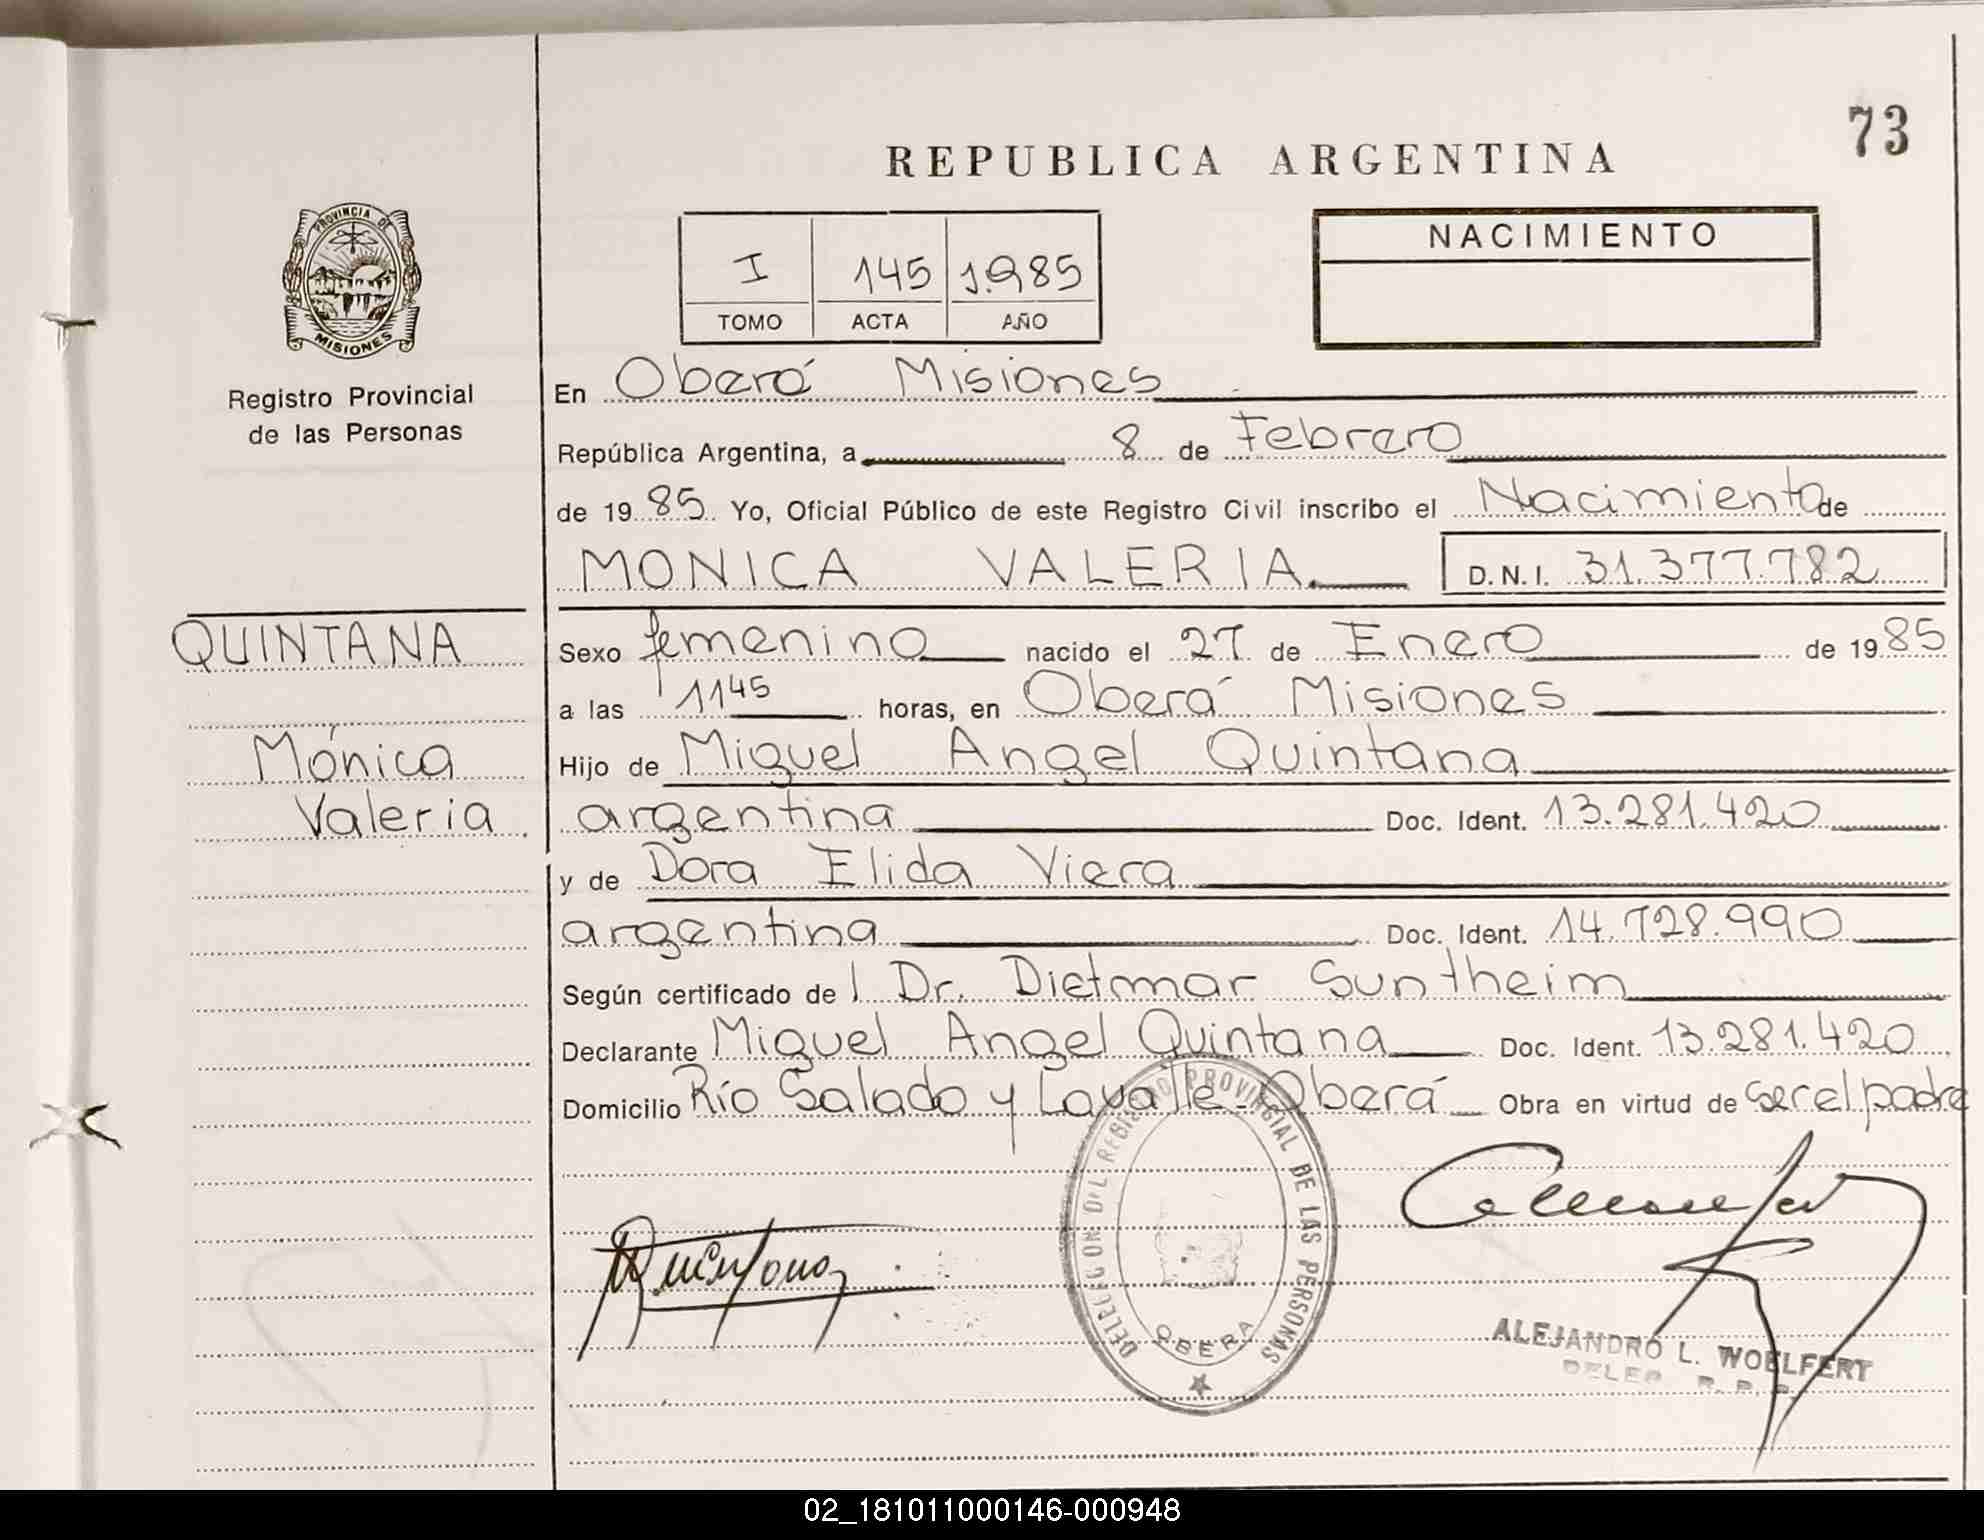 73
REPUBLICA ARGENTINA
PROVINCIA DE
MISIONES
Registro Provincial
de las Personas
I 145 1.985
TOMO ACTA AÑO
NACIMIENTO
En Oberá Misiones
República Argentina, a 8 de Febrero
de 1985 Yo, Oficial Público de este Registro Civil inscribo el Nacimiento de
MONICA VALERIA D.N.I. 31.377.782
QUINTANA
Mónica
Valeria
Sexo femenino nacido el 27 de Enero de 1985
a las 11 45 horas, en Oberá Misiones
Hijo de Miguel Angel Quintana
argentina Doc. Ident. 13.281.420
y de Dora Elida Viera
argentina Doc. Ident. 14.728.990
Según certificado de l Dr. Dietmar Suntheim
Declarante Miguel Angel Quintana Doc. Ident. 13.281.420
Domicilio Río Salado y Lavalle - Oberá Obra en virtud de ser el padre
DELEGACION DEL REGISTRO PROVINCIAL DE LAS PERSONAS
OBERA
ALEJANDRO L. WOELFERT
02_181011000146-000948